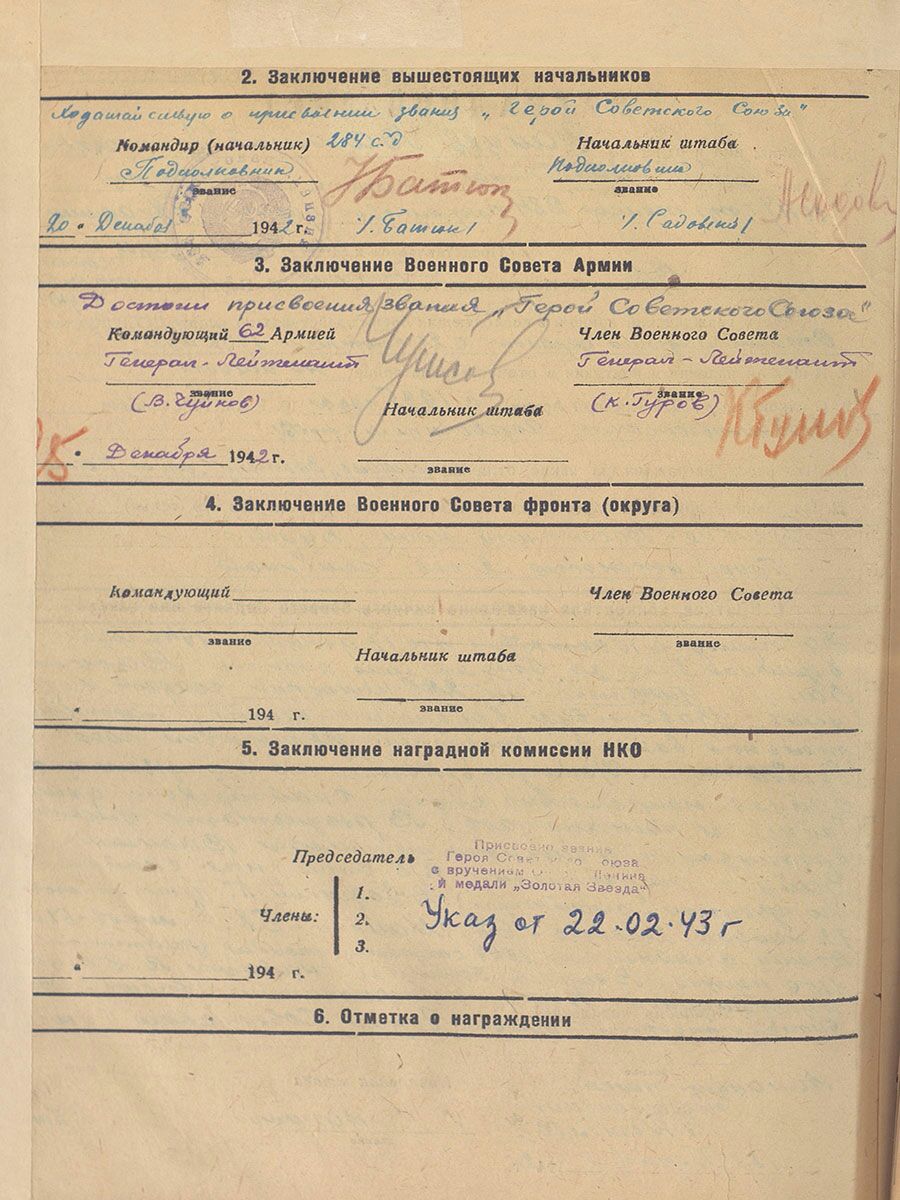 2. Заключение вышестоящих начальников
Ходатайствую о присвоении звания „Герой Советского Союза"
Командир (начальник) 284 сд Начальник штаба
Подполковник Подполковник
звание звание
Н Батюк
20 " Декабря 1942 г. /. Батюк / /. Садовский /
3. Заключение Военного Совета Армии
Достоин присвоения звания „Герой Советского Союза"
Командующий 62 Армией Член Военного Совета
Генерал-Лейтенант Генерал-Лейтенант
звание звание
(В. Чуйков) (К. Гуров)
Начальник штаба
" Декабря 1942 г.
звание
4. Заключение Военного Совета фронта (округа)
Командующий Член Военного Совета
звание звание
Начальник штаба
" 194 г.
звание
5. Заключение наградной комиссии НКО
Председатель
Присвоено звание
Героя Советского Союза
с вручением Ленина
и медали „Золотая Звезда"
Члены: 1.
2. Указ от 22.02.43 г
3.
" 194 г.
6. Отметка о награждении